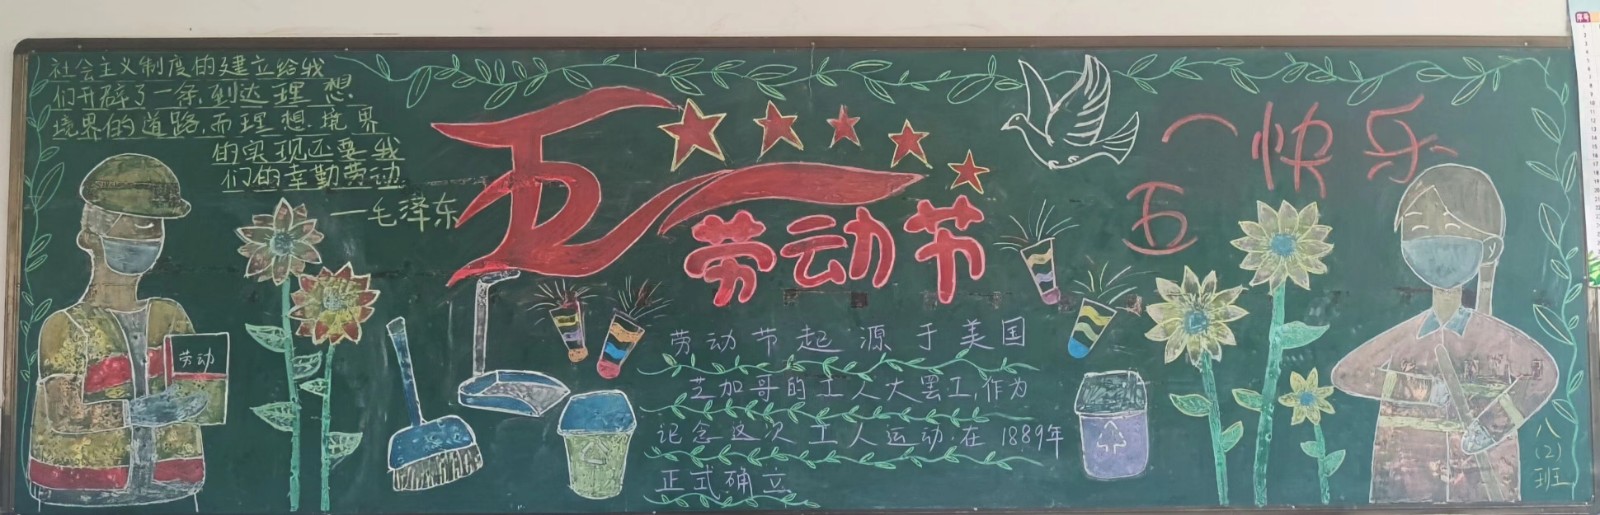 社会主义制度的建立给我
们开辟了一条到达理想
境界的道路,而理想境界
的实现还要我
们的辛勤劳动
—毛泽东
劳动
五一
劳动节
劳动节起源于美国
芝加哥的工人大罢工,作为
记念这次工人运动,在1889年
正式确立
五一快乐
八(2)班